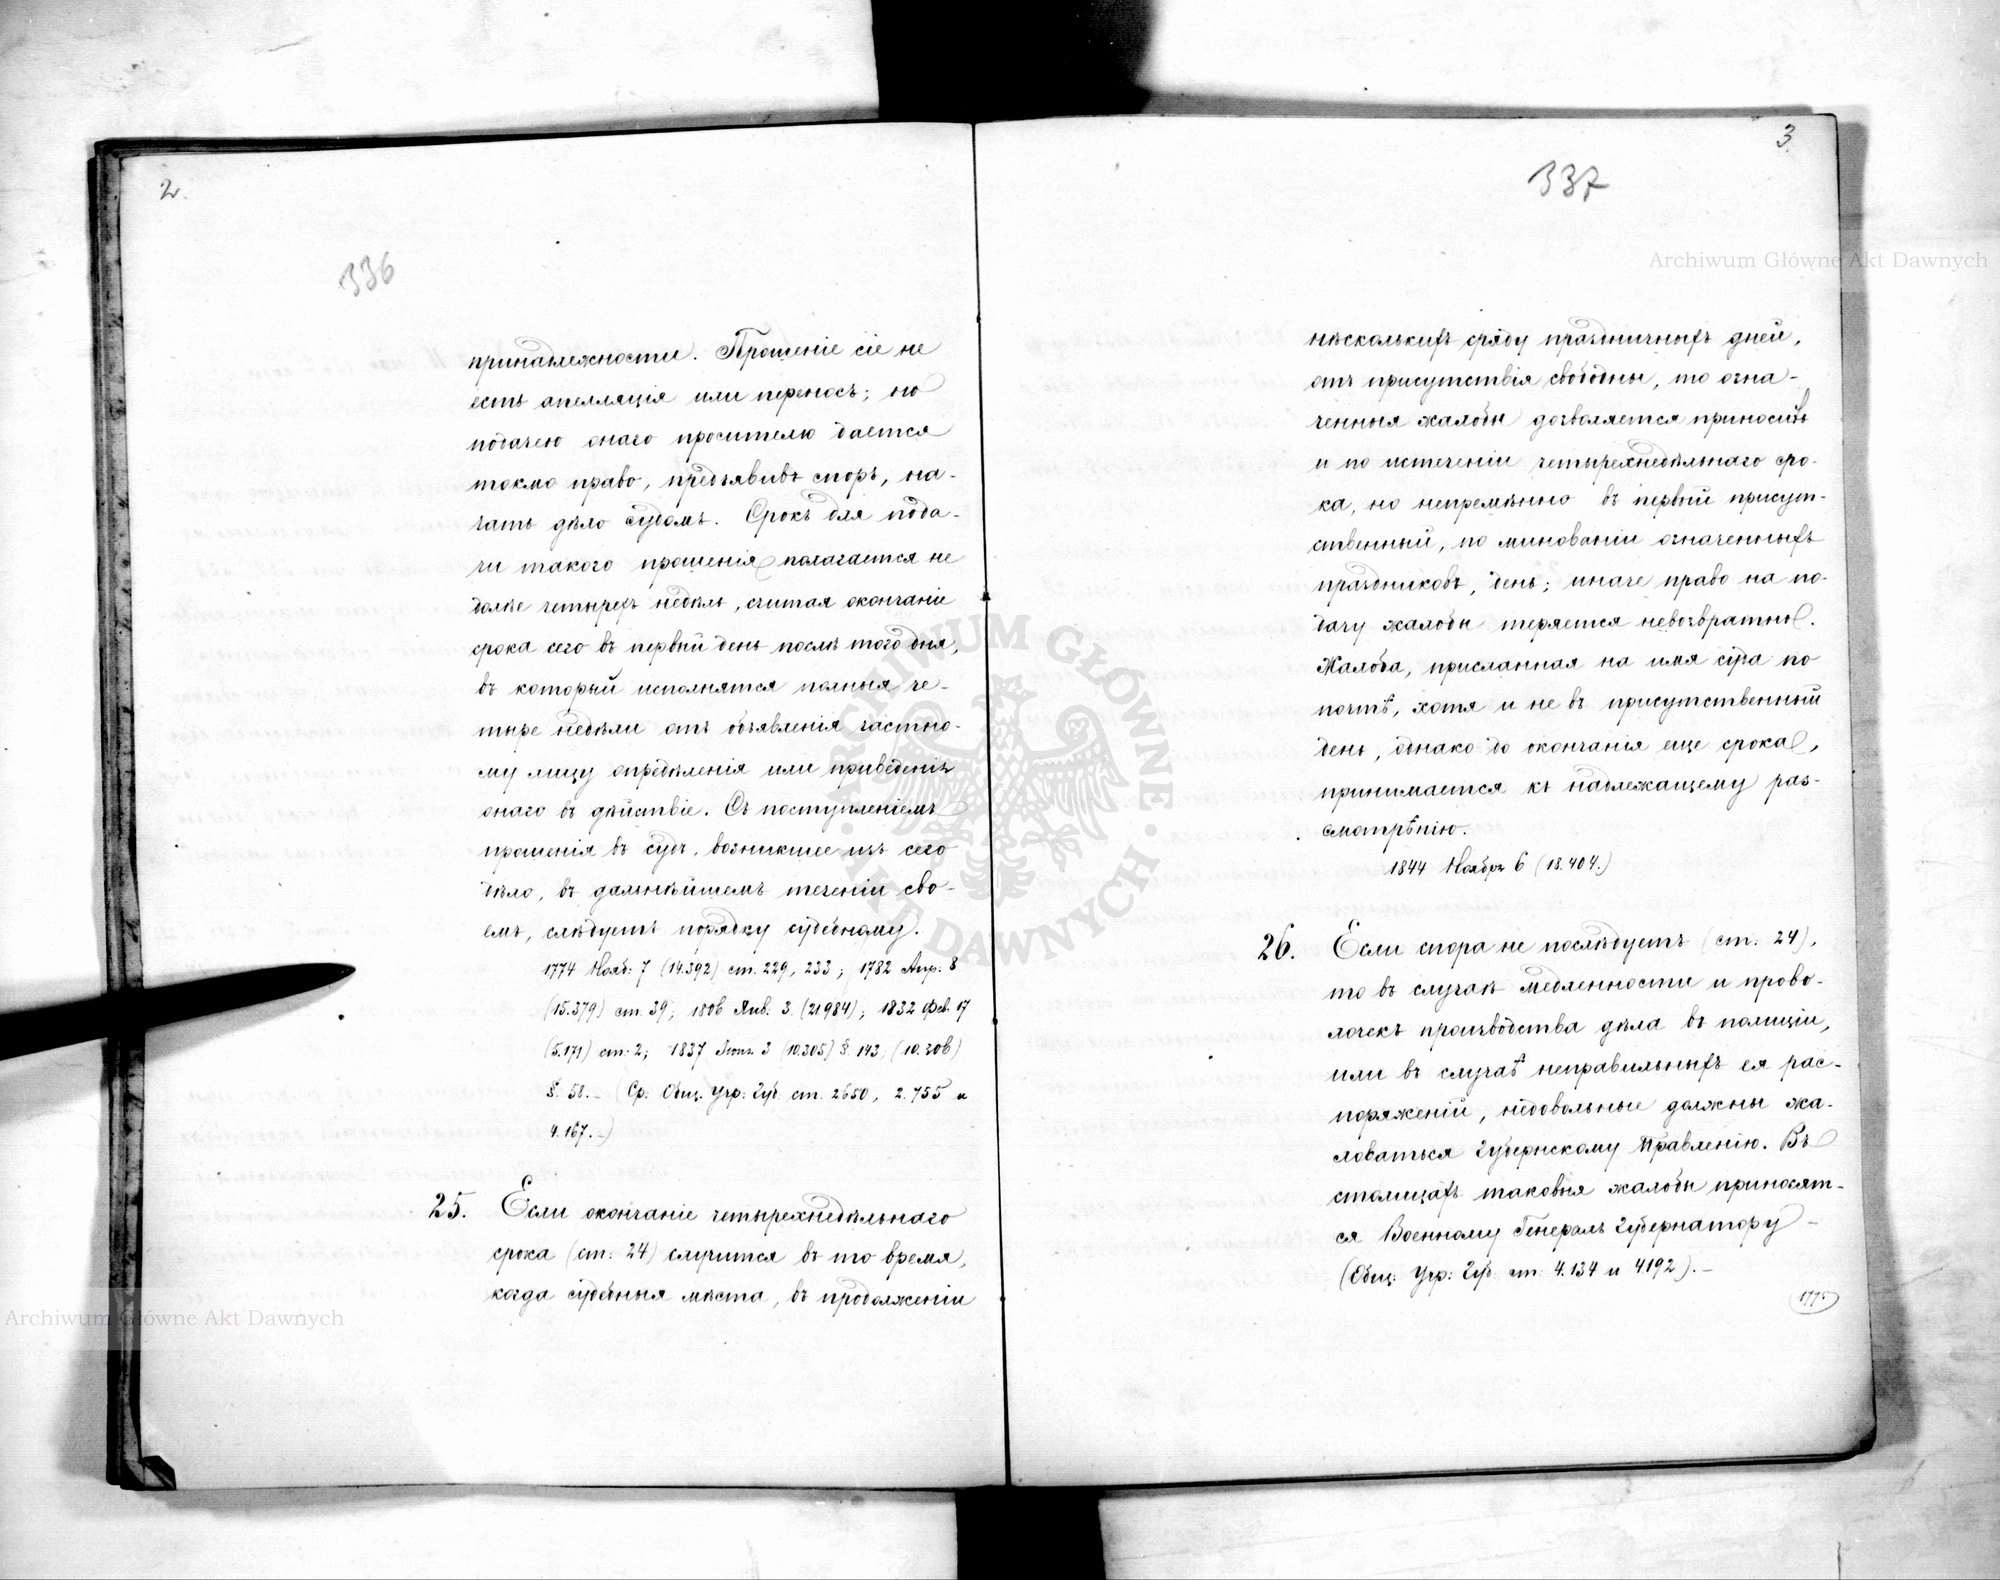 2.
336
принадлежности. Прошеніе сіе не
есть апелляція или переносъ; но
подачею онаго просителю дается
токмо право, предъявивъ споръ, на-
чать дѣло судомъ. Срокъ для пода-
чи такого прошенія полагается не
долѣе четырехъ недѣль, считая окончаніе
срока сего въ первый день послѣ того дня,
въ который исполнятся полныя че-
тыре недѣли отъ объявленія частно-
му лицу опредѣленія или приведенія
онаго въ дѣйствіе. Съ поступленіемъ
прошенія въ судъ, возникшее изъ сего
дѣло, въ дальнѣйшемъ теченіи сво-
емъ, слѣдуетъ порядку судебному.
1774 Нояб: 7 (14.392) ст. 229, 233; 1782 Апр: 8
(15.379) ст. 39; 1806 Янв: 3. (21984); 1832 Фев. 17
(5.171) ст: 2; 1837 Іюня 3 (10.305) §. 143, (10.306)
§. 58. – (Ср. Общ. Учр: Губ. ст. 2650, 2.755 и
4.167. –)
25. Если окончаніе четырехнедѣльнаго
срока (ст: 24) случится въ то время,
когда судебныя мѣста, въ продолженіи
3.
337
нѣсколькихъ сряду праздничныхъ дней,
отъ присутствія свободны, то озна-
ченныя жалобы дозволяется приносить
и по истеченіи четырехнедѣльнаго сро-
ка, но непремѣнно въ первый присут-
ственный, по минованіи означенныхъ
праздниковъ, день; иначе право на по-
дачу жалобы теряется невозвратно.
Жалоба, присланная на имя суда по
почтѣ, хотя и не въ присутственный
день, однако до окончанія еще срока,
принимается къ надлежащему раз-
смотрѣнію.
1844 Ноября 6 (18.404.)
26. Если спора не послѣдуетъ (ст. 24),
то въ случаѣ медленности и прово-
лочекъ производства дѣла въ полиціи,
или въ случаѣ неправильныхъ ея рас-
поряженій, недовольные должны жа-
ловаться Губернскому Правленію. Въ
столицахъ таковыя жалобы приносят-
ся Военному Генералъ Губернатору –
(Общ: Учр: Губ. ст. 4.134 и 4192). –
Archiwum Główne Akt Dawnych
Archiwum Główne Akt Dawnych
ARCHIWUM GŁÓWNE AKT DAWNYCH